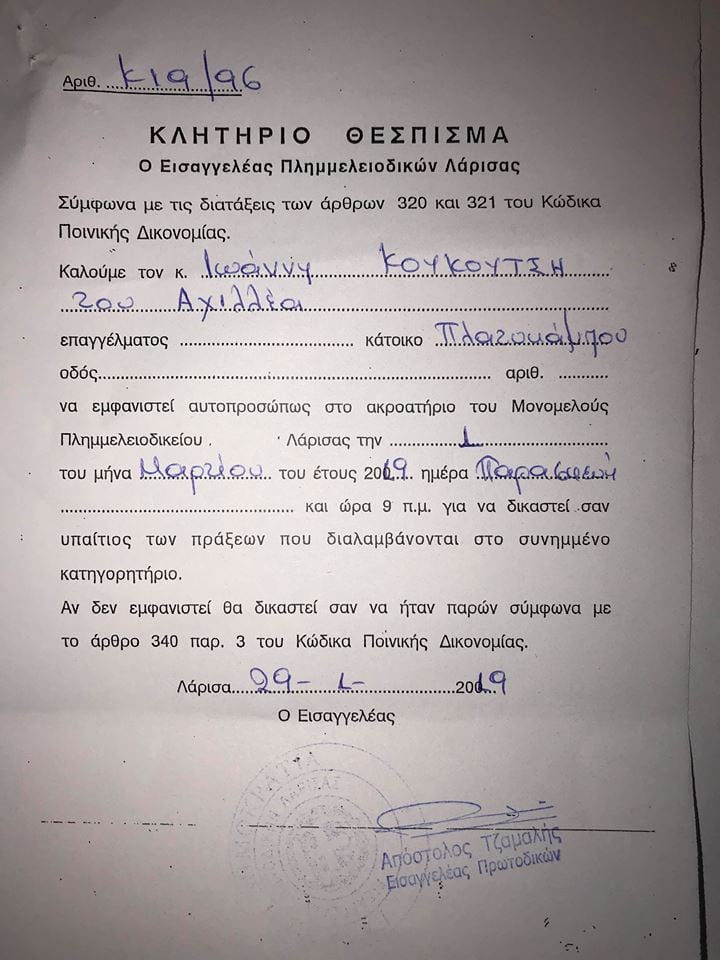 Αριθ. ..κ19/96
ΚΛΗΤΗΡΙΟ ΘΕΣΠΙΣΜΑ
Ο Εισαγγελέας Πλημμελειοδικών Λάρισας
Σύμφωνα με τις διατάξεις των άρθρων 320 και 321 του Κώδικα
Ποινικής Δικονομίας.
Καλούμε τον κ. Ιωάννη ΚΟΥΚΟΥΤΣΗ
του Αχιλλέα
επαγγέλματος .................................. κάτοικο Πλατυκάμπου
οδός.................................................................. αριθ. ...........
να εμφανιστεί αυτοπροσώπως στο ακροατήριο του Μονομελούς
Πλημμελειοδικείου . Λάρισας την ..........1....................
του μήνα Μαρτίου.. του έτους 2019.. ημέρα Παρασκευή
............................................. και ώρα 9 π.μ. για να δικαστεί σαν
υπαίτιος των πράξεων που διαλαμβάνονται στο συνημμένο
κατηγορητήριο.
Αν δεν εμφανιστεί θα δικαστεί σαν να ήταν παρών σύμφωνα με
το άρθρο 340 παρ. 3 του Κώδικα Ποινικής Δικονομίας.
Λάρισα...29-1-..................2019
Ο Εισαγγελέας
Απόστολος Τζαμαλής
Εισαγγελέας Πρωτοδικών